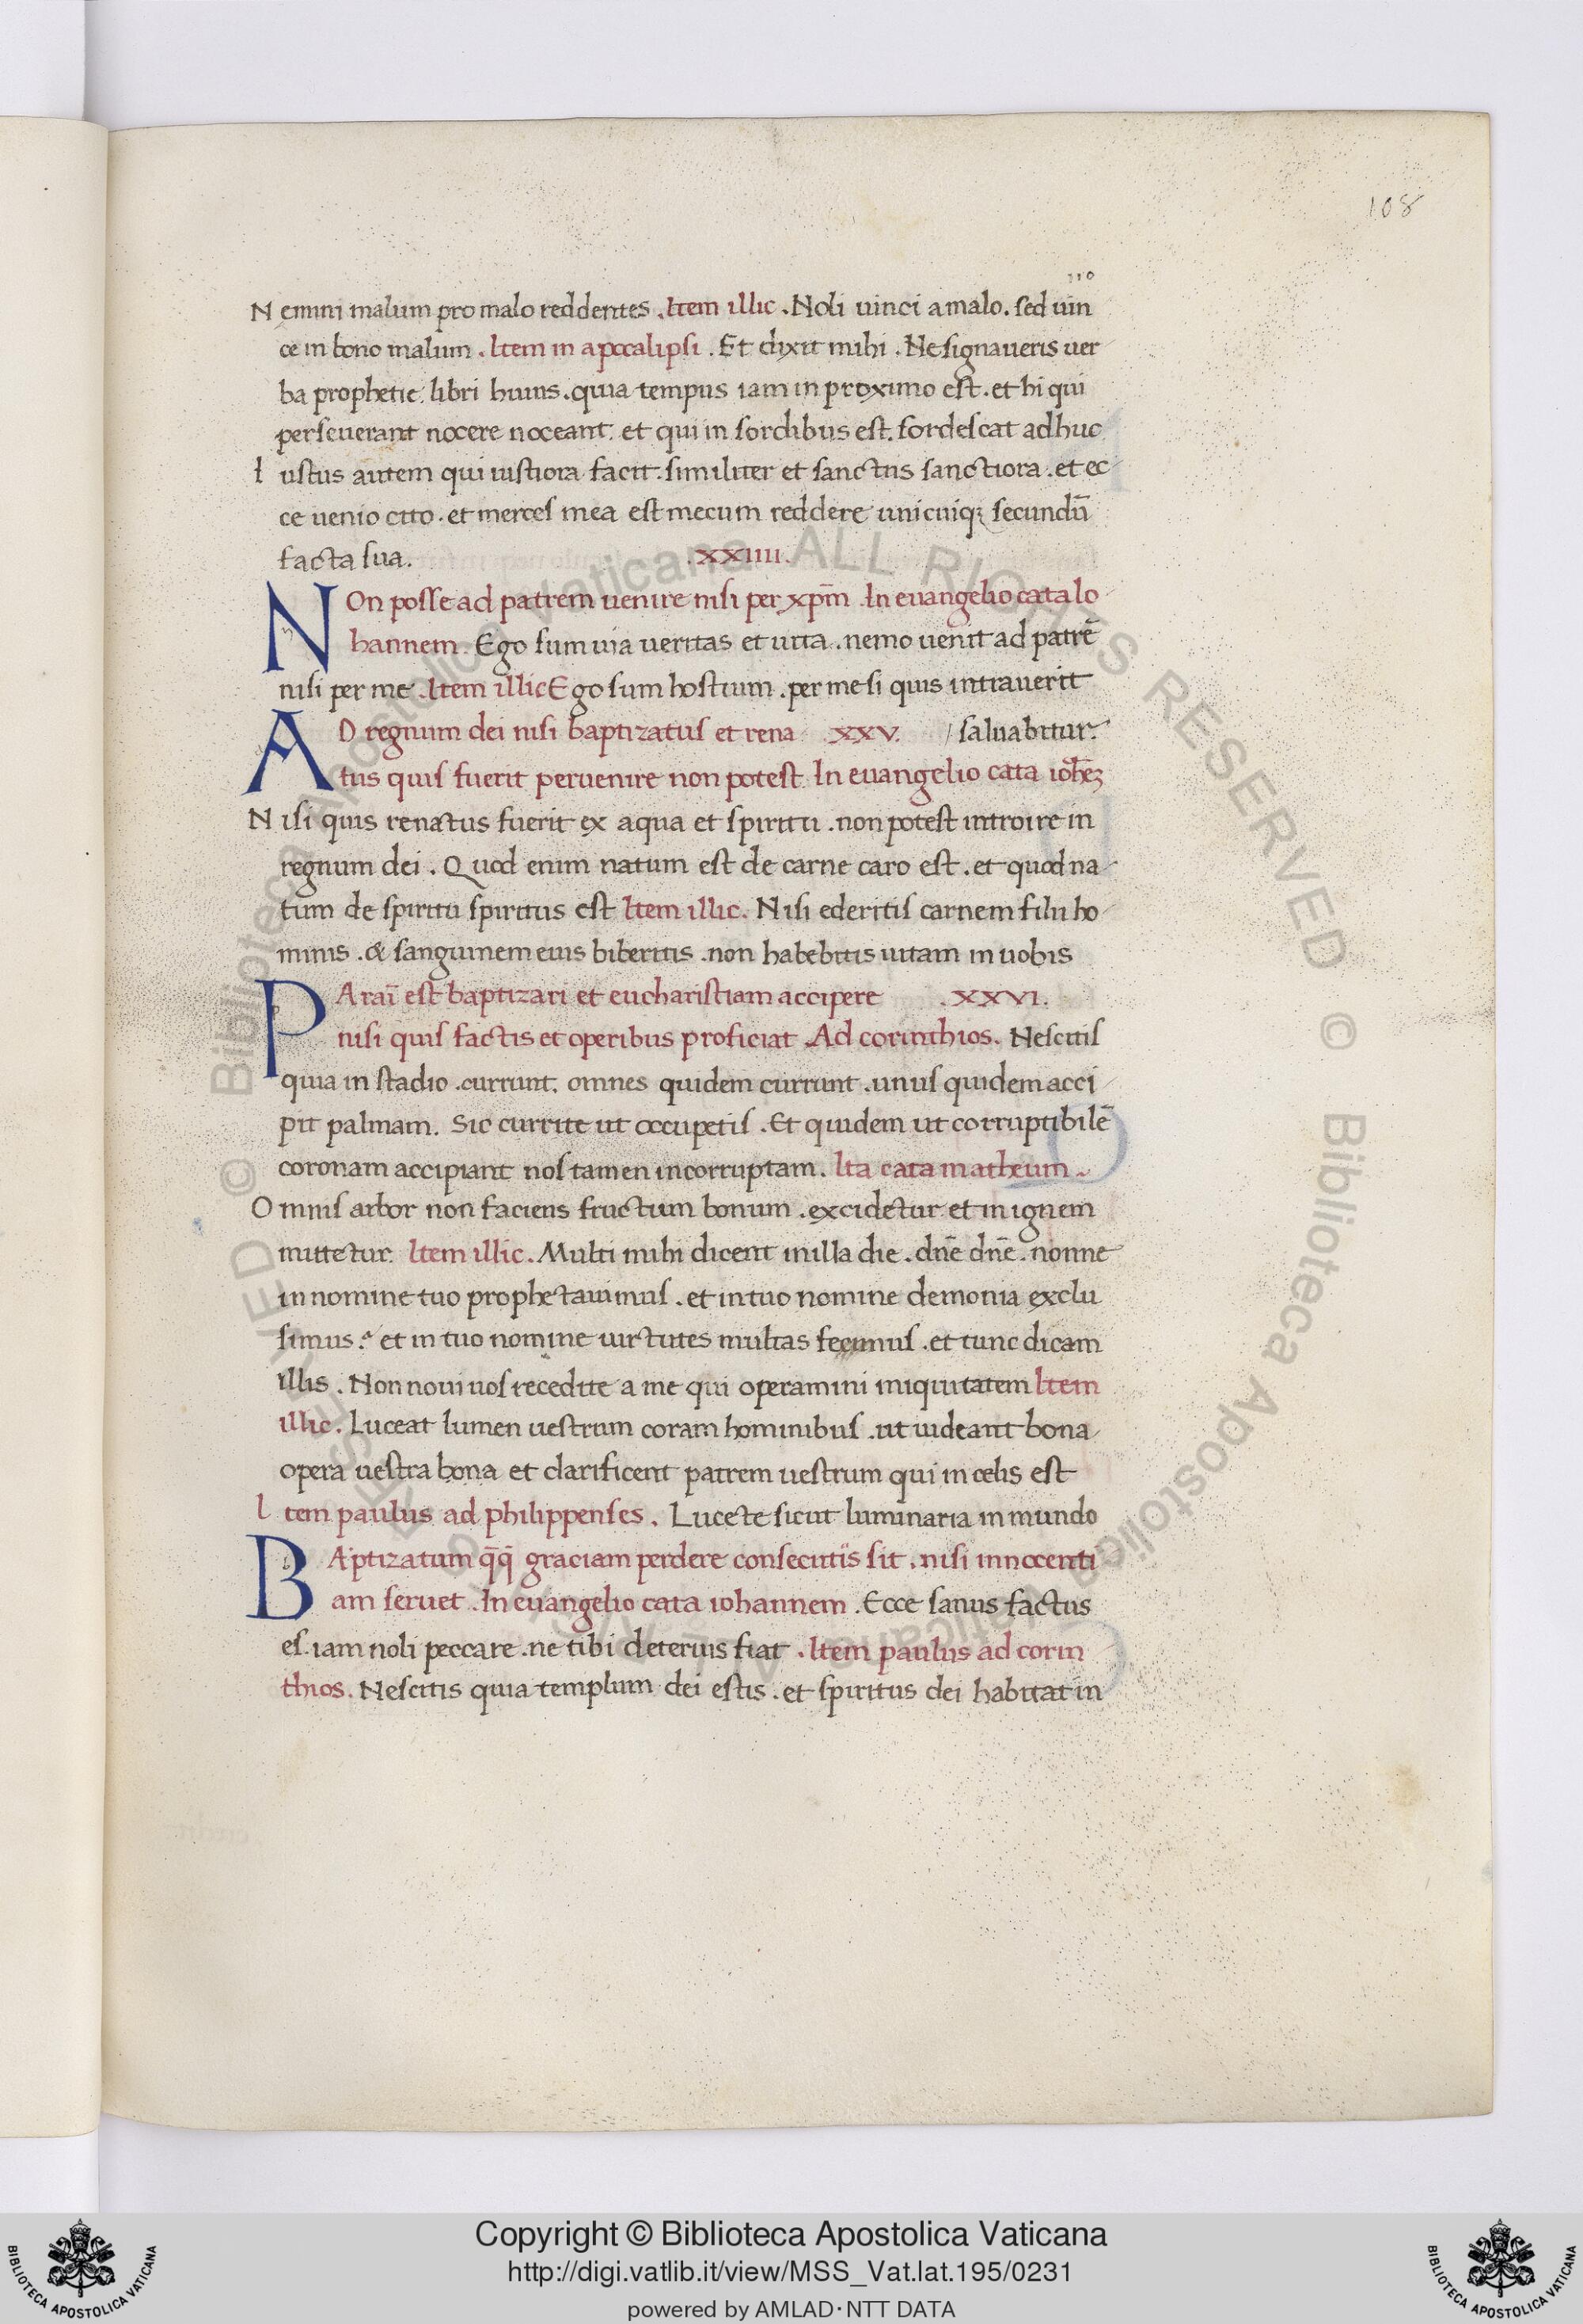 108
110
Nemini malum pro malo reddentes. Item illic. Noli uinci a malo. sed uin
ce in bono malum. Item in apocalipsi. Et dixit mihi. Ne signaueris uer
ba prophetie libri huius. quia tempus iam in proximo est. et hi qui
perseuerant nocere noceant. et qui in sordibus est. sordescat adhuc
Iustus autem qui iustiora facit. similiter et sanctus sanctiora. et ec
ce uenio cito. et merces mea est mecum reddere unicuiqꝫ secundū
facta sua. .XXIIII.
NOn posse ad patrem uenire nisi per xp̄m In euangelio cata Io
hannem. Ego sum uia ueritas et uita. nemo uenit ad patrē
nisi per me. Item illic Ego sum hostium. per me si quis intrauerit
AD regnum dei nisi baptizatus et rena XXV. / saluabitur.
tus quis fuerit peruenire non potest. In euangelio cata ioh̄eꝫ
Nisi quis renatus fuerit ex aqua et spiritu. non potest introire in
regnum dei. Quod enim natum est de carne caro est. et quod na
tum de spiritu spiritus est Item illic. Nisi ederitis carnem filii ho
minis. & sanguinem eius biberitis. non habebitis uitam in uobis
PArai est baptizari et eucharistiam accipere .XXVI.
nisi quis factis et operibus proficiat. Ad corinthios. Nescitis
quia in stadio. currunt. omnes quidem currunt. unus quidem acci
pit palmam. Sic currite ut occupetis. Et quidem ut corruptibilē
coronam accipiant nos tamen incorruptam. Ita cata matheum.
Omnis arbor non faciens fructum bonum. excidetur et in ignem
mittetur. Item illic. Multi mihi dicent in illa die. dn̄e dn̄e. nonne
in nomine tuo prophetauimus. et in tuo nomine demonia exclu
simus? et in tuo nomine uirtutes multas fecimus. et tunc dicam
illis. Non noui uos recedite a me qui operamini iniquitatem Item
illic. Luceat lumen uestrum coram hominibus. ut uideant bona
opera uestra bona et clarificent patrem uestrum qui in celis est
Item paulus ad philippenses. Lucete sicut luminaria in mundo
BAptizatum q̄q̄ graciam perdere consecutus sit. nisi innocenti
am seruet. In euangelio cata iohannem. Ecce sanus factus
es. iam noli peccare. ne tibi deterius fiat. Item paulus ad corin
thios. Nescitis quia templum dei estis. et spiritus dei habitat in
© Biblioteca Apostolica Vaticana ALL RIGHTS RESERVED © Biblioteca Apostolica Vaticana
BIBLIOTECA APOSTOLICA VATICANA
Copyright © Biblioteca Apostolica Vaticana
http://digi.vatlib.it/view/MSS_Vat.lat.195/0231
powered by AMLAD·NTT DATA
BIBLIOTECA APOSTOLICA VATICANA